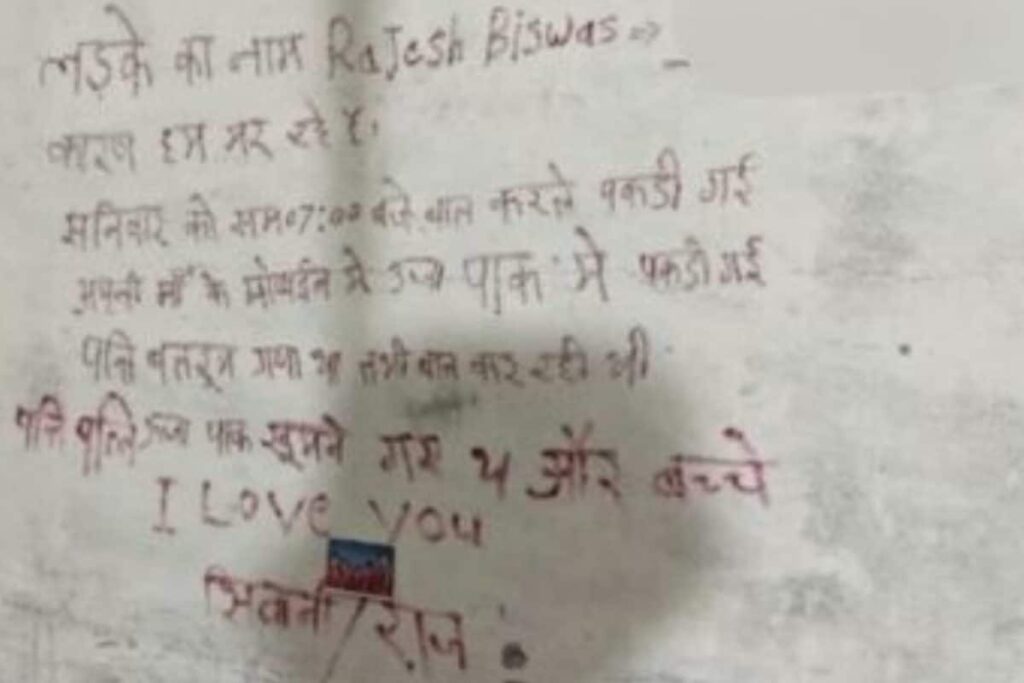 लड़के का नाम RaJesh Biswas =>
कारण हम मर रहे है।
सनिवार को सम07:00 बजे बात करते पकडी गई
अपनी माँ के मोबाईल मे उजा पाक मे पकडी गई
पति बतरूम गया था तभी बात कर रही थी
पति पत्नि उजा पाक घूमने गए थे और बच्चे
I Love you
/ राज